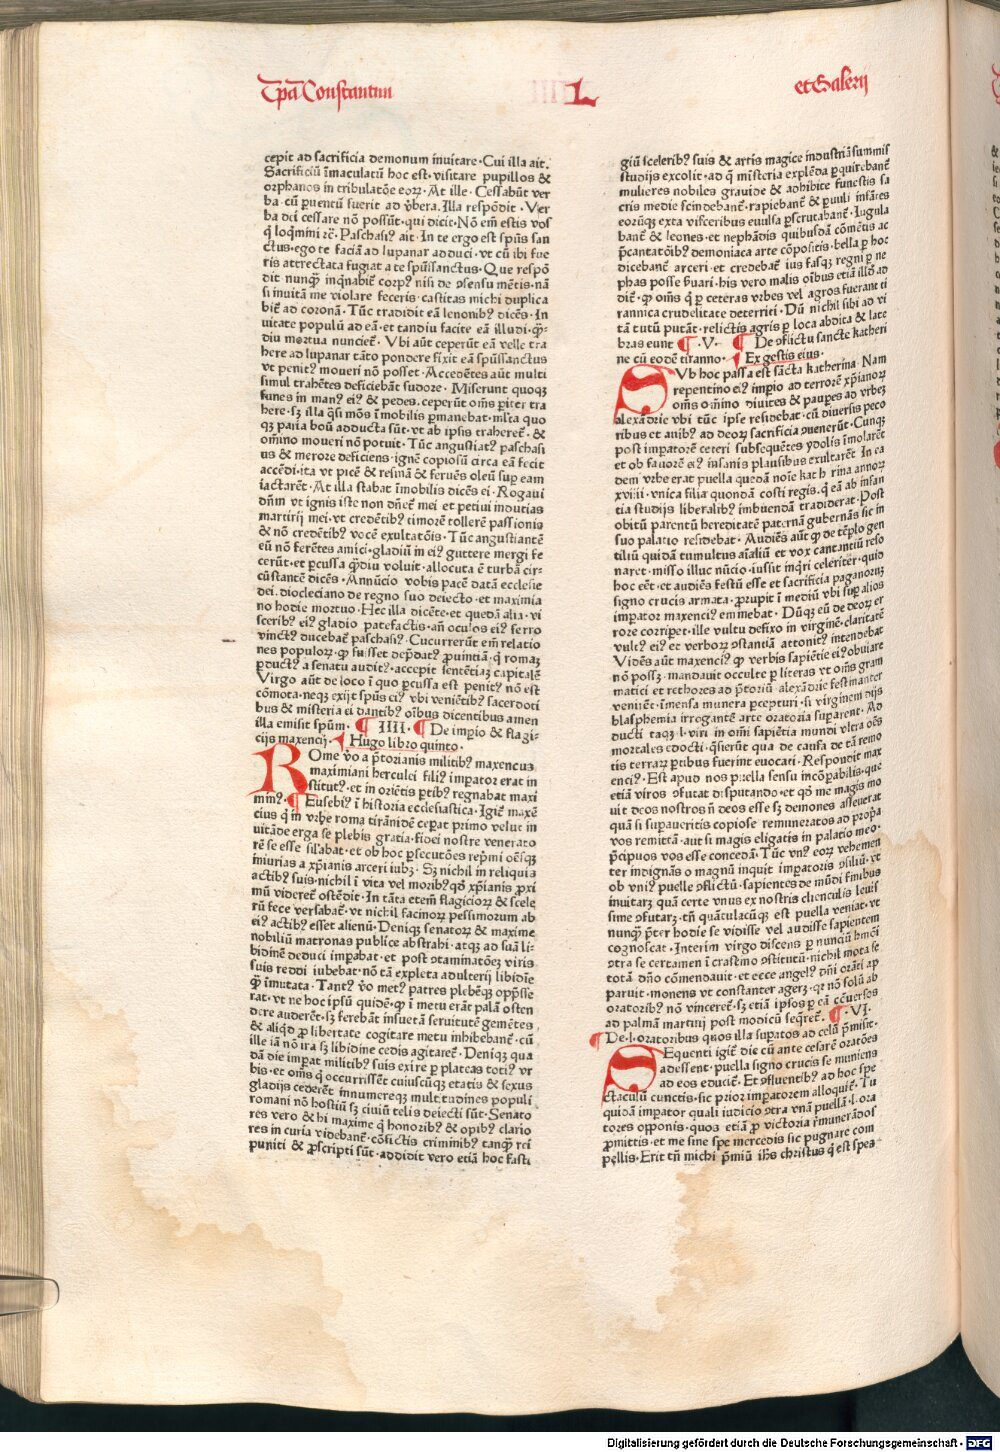 Tpa Constantini
L
et Galerij
cepit ad sacrificia demonum inuitare. Cui illa ait.
Sacrificiū īmaculatū hoc est. visitare pupillos &
orphanos in tribulatōe eoꝝ. At ille. Cessabūt ver
ba cū ꝑuentū fuerit ad v̄bera. Illa respōdit. Ver
ba dei cessare nō possūt. qui dicit. Nō em̄ estis vos
q̇ loq̇mini ⁊c̄. Paschasiꝰ ait. In te ergo est sp̄us san
ctus. ego te faciā ad lupanar adduci. vt cū ibi fue
ris attrectata fugiat a te sp̄ussanctus. Que respō
dit nunqꝫ inq̇nabiť corpꝰ nisi de ↄsensu mētis. nā
si inuitā me violare feceris. castitas michi duplica
biť ad coronā. Tūc tradidit eā lenonibꝰ dicēs. In
uitate populū ad eā. et tandiu facite eā illudi. qꝫ-
diu mortua nuncieť. Vbi aūt ceperūt eā velle tra
here ad lupanar tāto pondere fixit eā sp̄ussanctus
vt penitꝰ moueri nō posset. Accedētes aūt multi
simul trahētes deficiebāt sudore. Miserunt quoqꝫ
funes in manꝰ eiꝰ & pedes. ceperūt om̄s piter tra
here. sꝫ illa q̇si mōs ī mobilis ꝑmanebat. mlta quo
qꝫ paria boū adducta sūt. vt ab ipsis traherēt. &
om̄ino moueri nō potuit. Tūc angustiatꝰ paschasi
us & merore deficiens. ignē copiosū circa eā fecit
accēdi. ita vt picē & resinā & feruēs oleū sup eam
iactarēt. At illa stabat īmobilis dicēs ei. Rogaui
dn̄m vt ignis iste non dn̄eť mei et petiui inducias
martirij mei. vt credētibꝰ timorē tollerē passionis
& nō credētibꝰ vocē exultatōis. Tūc angustiantē
eū nō ferētes amici. gladiū in eiꝰ guttere mergi fe
cerūt. et ꝑcussa qꝫdiu voluit. allocuta ē turbā cir-
cūstantē dicēs. Annūcio vobis pacē datā ecclesie
dei. diocleciano de regno suo deiecto. et maximia
no hodie mortuo. Hec illa dicēte. et quedā alia. vi
sceribꝰ eiꝰ gladio patefactis. an̄ oculos eiꝰ ferro
vinctꝰ ducebať paschasiꝰ. Cucurrerūt em̄ relatio
nes populoꝝ. ꝙ fuisset dep̄datꝰ ꝓuintiā. q̇ romaꝫ
ꝑductꝰ a senatu auditꝰ. accepit sentētiaꝫ capitalē
Virgo aūt de loco ī quo ꝑcussa est penitꝰ nō est
cōmota. neqꝫ exijt sp̄us eiꝰ vbi veniētibꝰ sacerdoti
bus & misteria ei dantibꝰ oībus dicentibus amen
illa emisit spūm. ¶ IIII. ¶ De imꝑio & flagi-
cijs maxencij. ¶ Hugo libro quinto.
ROme v̄o a p̄torianis militibꝰ maxencius
maximiani herculei filiꝰ imꝑator erat in
stitutꝰ. et in oriētis ꝑtibꝰ regnabat maxi
minꝰ. ¶ Eusebiꝰ ī historia ecclesiastica. Igiť maxē
cius q̇ in vrbe roma tirānidē ceꝑat primo velut in
uitāde erga se plebis gratia. fidei nostre venerato
rē se esse siľabat. et ob hoc ꝑsecutōes rep̄mi oēsqꝫ
iniurias a xp̄ianis arceri iubꝫ. Sꝫ nichil in reliquis
actibꝰ suis. nichil ī vita vel moribꝰ qd̓ xp̄ianis ꝓxi
mū videreť ostēdit. In tāta etem̄ flagicioꝝ & scele
rū fece versabať. vt nichil facinoꝝ pessimorum ab
eiꝰ actibꝰ esset alienū. Denique senatoꝝ & maxime
nobiliū matronas publice abstrahi. atqꝫ ad suā li-
bidinē deduci imꝑabat. et post ↄtaminatōeꝫ viris
suis reddi iubebat. nō tā expleta adulterij libidīe
qꝫ īmutata. Tantꝰ v̄o metꝰ patres plebēqꝫ opp̄sse
rat. vt ne hoc ipsū quidē. ꝙ ī metu erāt palā osten
dere auderēt. sꝫ ferebāt insuetā seruitutē gemētes.
& aliqd̓ ꝓ libertate cogitare metu inhibebanť. cū
ille iā nō ira sꝫ libidine cedis agitareť. Deniqꝫ qua
dā die imꝑat militibꝰ suis exire ꝑ plateas totiꝰ vr
bis. et om̄s q̇ occurrissēt cuiuscūqꝫ etatis & sexus
gladijs cederēť innumereqꝫ multitudines populi
romani nō hostiū sꝫ ciuiū telis deiecti sūt. Senato
res vero & hi maxime q̇ honoribꝰ & opibꝰ clario
res in curia videbanť. cōfictis criminibꝰ tanqꝫ rei
puniti & ꝓscripti sūt. addidit vero etiā hoc fasti
giū sceleribꝰ suis & artis magice industriā summis
studijs excolit. ad q̇ mīsteria explēda ꝑquirebanť
mulieres nobiles grauide & adhibite funestis sa
cris medie scindebanť. rapiebanť & ꝑuuli infātes
eorūqꝫ exta visceribus euulsa ꝑscrutabanť. Iugula
banť & leones. et nephādis quibusdā cōmētis ac
p̄cantatōibꝰ demoniaca arte cōpositis. bella ꝑ hoc
dicebanť arceri. et credebať ius fasqꝫ regni ꝑ ne
phas posse ẜuari. his vero malis oībus etiā illd̓ ad
dit. ꝙ om̄s q̇ ꝑ ceteras vrbes vel agros fuerant ti
rannica crudelitate deterriti. Dū nichil sibi ad vi
tā tutū putāt. relictis agris ꝑ loca abdita & late
bras eunt ¶ .V. ¶ De ↄflictu sancte katheri
ne cū eodē tiranno. ¶ Ex gestis eius.
SVb hoc passa est sācta katherina. Nam
repentino eiꝰ imꝑio ad terrorē xp̄ianoꝝ
om̄s om̄ino diuites & pauꝑes ad vrbeꝫ
alexādrie vbi tūc ipse residebat. cū diuersis peco
ribus et auibꝰ ad deoꝝ sacrificia ↄuenerūt. Cunqꝫ
post imꝑatorē ceteri subsequētes ydolis īmolarēt
et ob fauorē eiꝰ insanis plausibus exultarēt. In ea
dem vrbe erat puella quedā noīe katherina annoꝝ
xviii. vnica filia quondā costi regis. q̇ eā ab infan
tia studijs liberalibꝰ imbuendā tradiderat. Post
obitū parentū hereditatē paternā gubernās sic in
suo palatio residebat. Audiēs aūt ꝙ de tēplo gen
tiliū quidā tumultus aīaliū et vox cantantiū reso
naret. misso illuc nūcio. iussit inq̇ri celeriter. quid
hoc eēt. et audiēs festū esse et sacrificia paganoꝝ
signo crucis armata. ꝓrupit ī mediū vbi suꝑ alios
imꝑator maxenciꝰ eminebat. Dūqꝫ eū de deoꝝ er
rore corriꝑet. ille vultu defixo in virginē. claritatē
vultꝰ eiꝰ et verboꝝ ↄstantiā attonitꝰ intendebat
Vidēs aūt maxenciꝰ ꝙ verbis sapiētie eiꝰ obuiare
nō possꝫ. mandauit occulte ꝑ literas vt om̄s gram
matici et rethores ad p̄toriū alexādrie festinanter
veniēt. īmensa munera ꝑcepturi. si virginem dijs
blasphemia irrogantē arte oratoria suꝑarent. Ad
ducti taqꝫ l. viri in om̄i sapiētia mundi vltra oēs
mortales edocti. q̇sierūt qua de causa de tā remo
tis terraꝝ ꝑtibus fuerint euocati. Respondit max
enciꝰ. Est apud nos puella sensu incōꝑabilis. que
etiā viros ↄfutat disputando. et qd̓ me magis mo
uit deos nostros n̄ deos esse sꝫ demones asseuerat
quā si suꝑaueritis copiose remuneratos ad ꝓp̄a
vos remittā. aut si magis eligatis in palatio meo.
p̄cipuos vos esse concedā. Tūc vnꝰ eoꝝ vehemen
ter indignās o magnū inquit imꝑatoris ↄsiliū. vt
ob vniꝰ puelle ↄflictū. sapientes de mūdi finibus
inuitarꝫ quā certe vnus ex nostris clienculis leuis
sime ↄfutarꝫ. tn̄ quātulacūqꝫ est puella veniat. vt
nunqꝫ p̄ter hodie se vidisse vel audisse sapientem
cognoscat. Interim virgo discens ꝑ nunciū hm̄oi
ↄtra se certamen ī crastīno ↄstitutū. nichil mota se
totā dn̄o cōmendauit. et ecce angelꝰ dn̄i orāti ap
paruit. monens vt constanter ageꝫ. qꝛ nō solū ab
oratoribꝰ nō vinceret. sꝫ etiā ipsos ꝑ eā cōuersos
ad palmā martirij post modicū seq̇reť. ¶ .VI.
¶ De .l. oratoribus quos illa suꝑatos ad celū p̄misit.
SEquenti igiť die cū ante cesarē oratōes
adessent. puella signo crucis se muniens
ad eos educiť. Et ↄfluentibꝰ ad hoc spe
ctaculū cunctis. sic prior imꝑatorem alloquiť. Tu
quidā imꝑator quali iudicio ↄtra vnā puellā .l. ora
tores opponis. quos etiā ꝓ victoria r̄munerādos
ꝓmittis. et me sine spe mercedis sic pugnare com
pellis. Erit tn̄ michi p̄miū ih̄s christus q̇ est spes
Digitalisierung gefördert durch die Deutsche Forschungsgemeinschaft - DFG